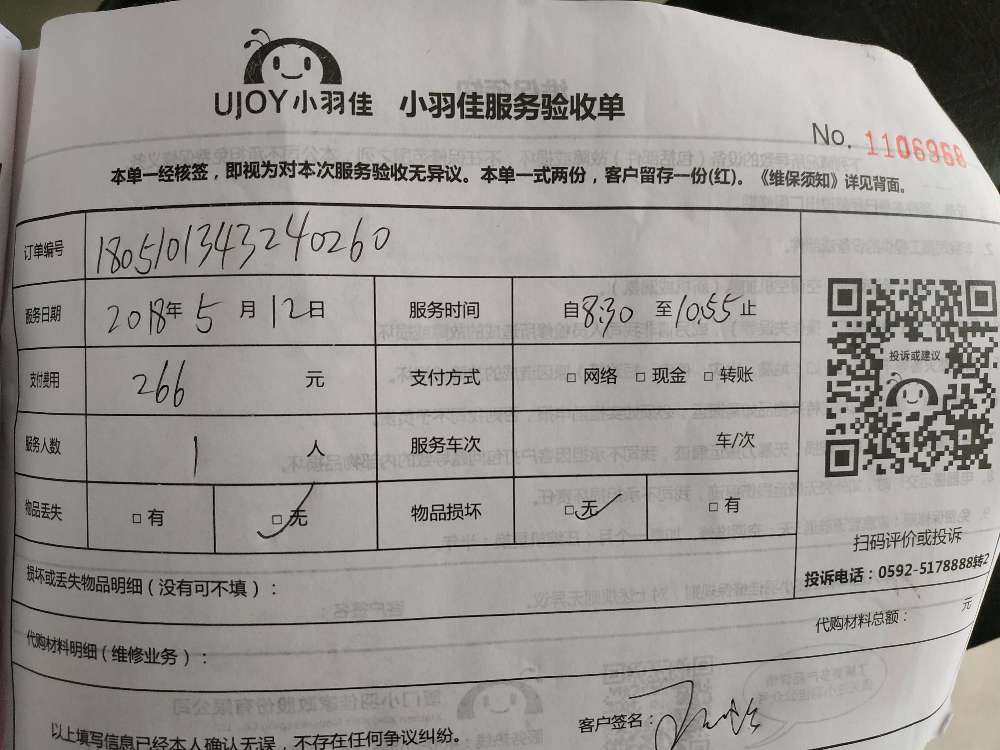 UJOY小羽佳 小羽佳服务验收单
No. 1106968
本单一经核签，即视为对本次服务验收无异议。本单一式两份，客户留存一份(红)。《维保须知》详见背面。
订单编号 1805101343240260
服务日期 2018年 5 月 12日 服务时间 自8:30 至10:55止
支付费用 266 元 支付方式 □ 网络 □ 现金 □ 转账
服务人数 1 人 服务车次 车/次
物品丢失 □ 有 □ 无 ✓ 物品损坏 □ 无 ✓ □ 有
投诉或建议
扫码评价或投诉
投诉电话：0592-5178888转2
损坏或丢失物品明细（没有可不填）：
代购材料明细（维修业务）： 代购材料总额： 元
以上填写信息已经本人确认无误，不存在任何争议纠纷。 客户签名：